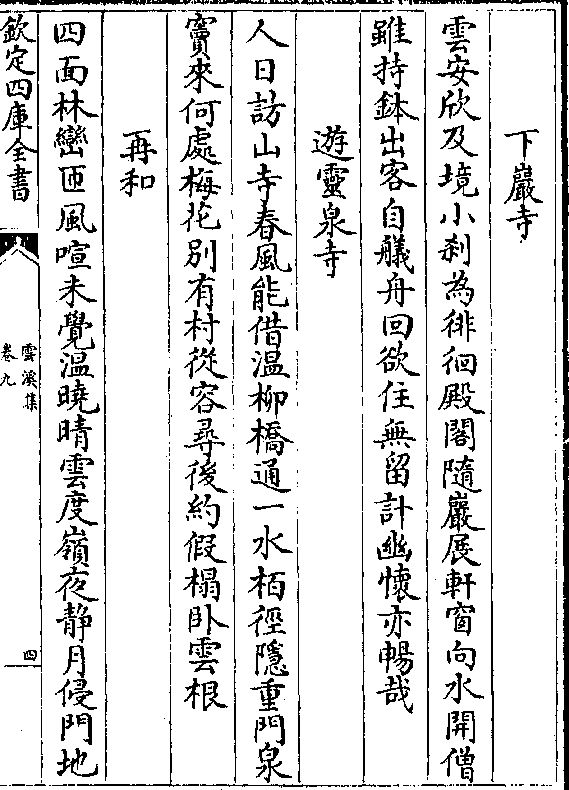 下巖寺
雲安欣及境小刹為徘徊殿閣隨巖展軒窗向水開僧
雖持鉢出客自艤舟回欲住無留計幽懷亦暢哉
遊靈泉寺
人日訪山寺春風能借温柳橋通一水栢徑隱重門泉
竇來何處梅花别有村從容尋後約假榻卧雲根
再和
四面林巒匝風喧未覺温曉晴雲度嶺夜静月侵門地
欽定四庫全書
雲溪集
卷九
四